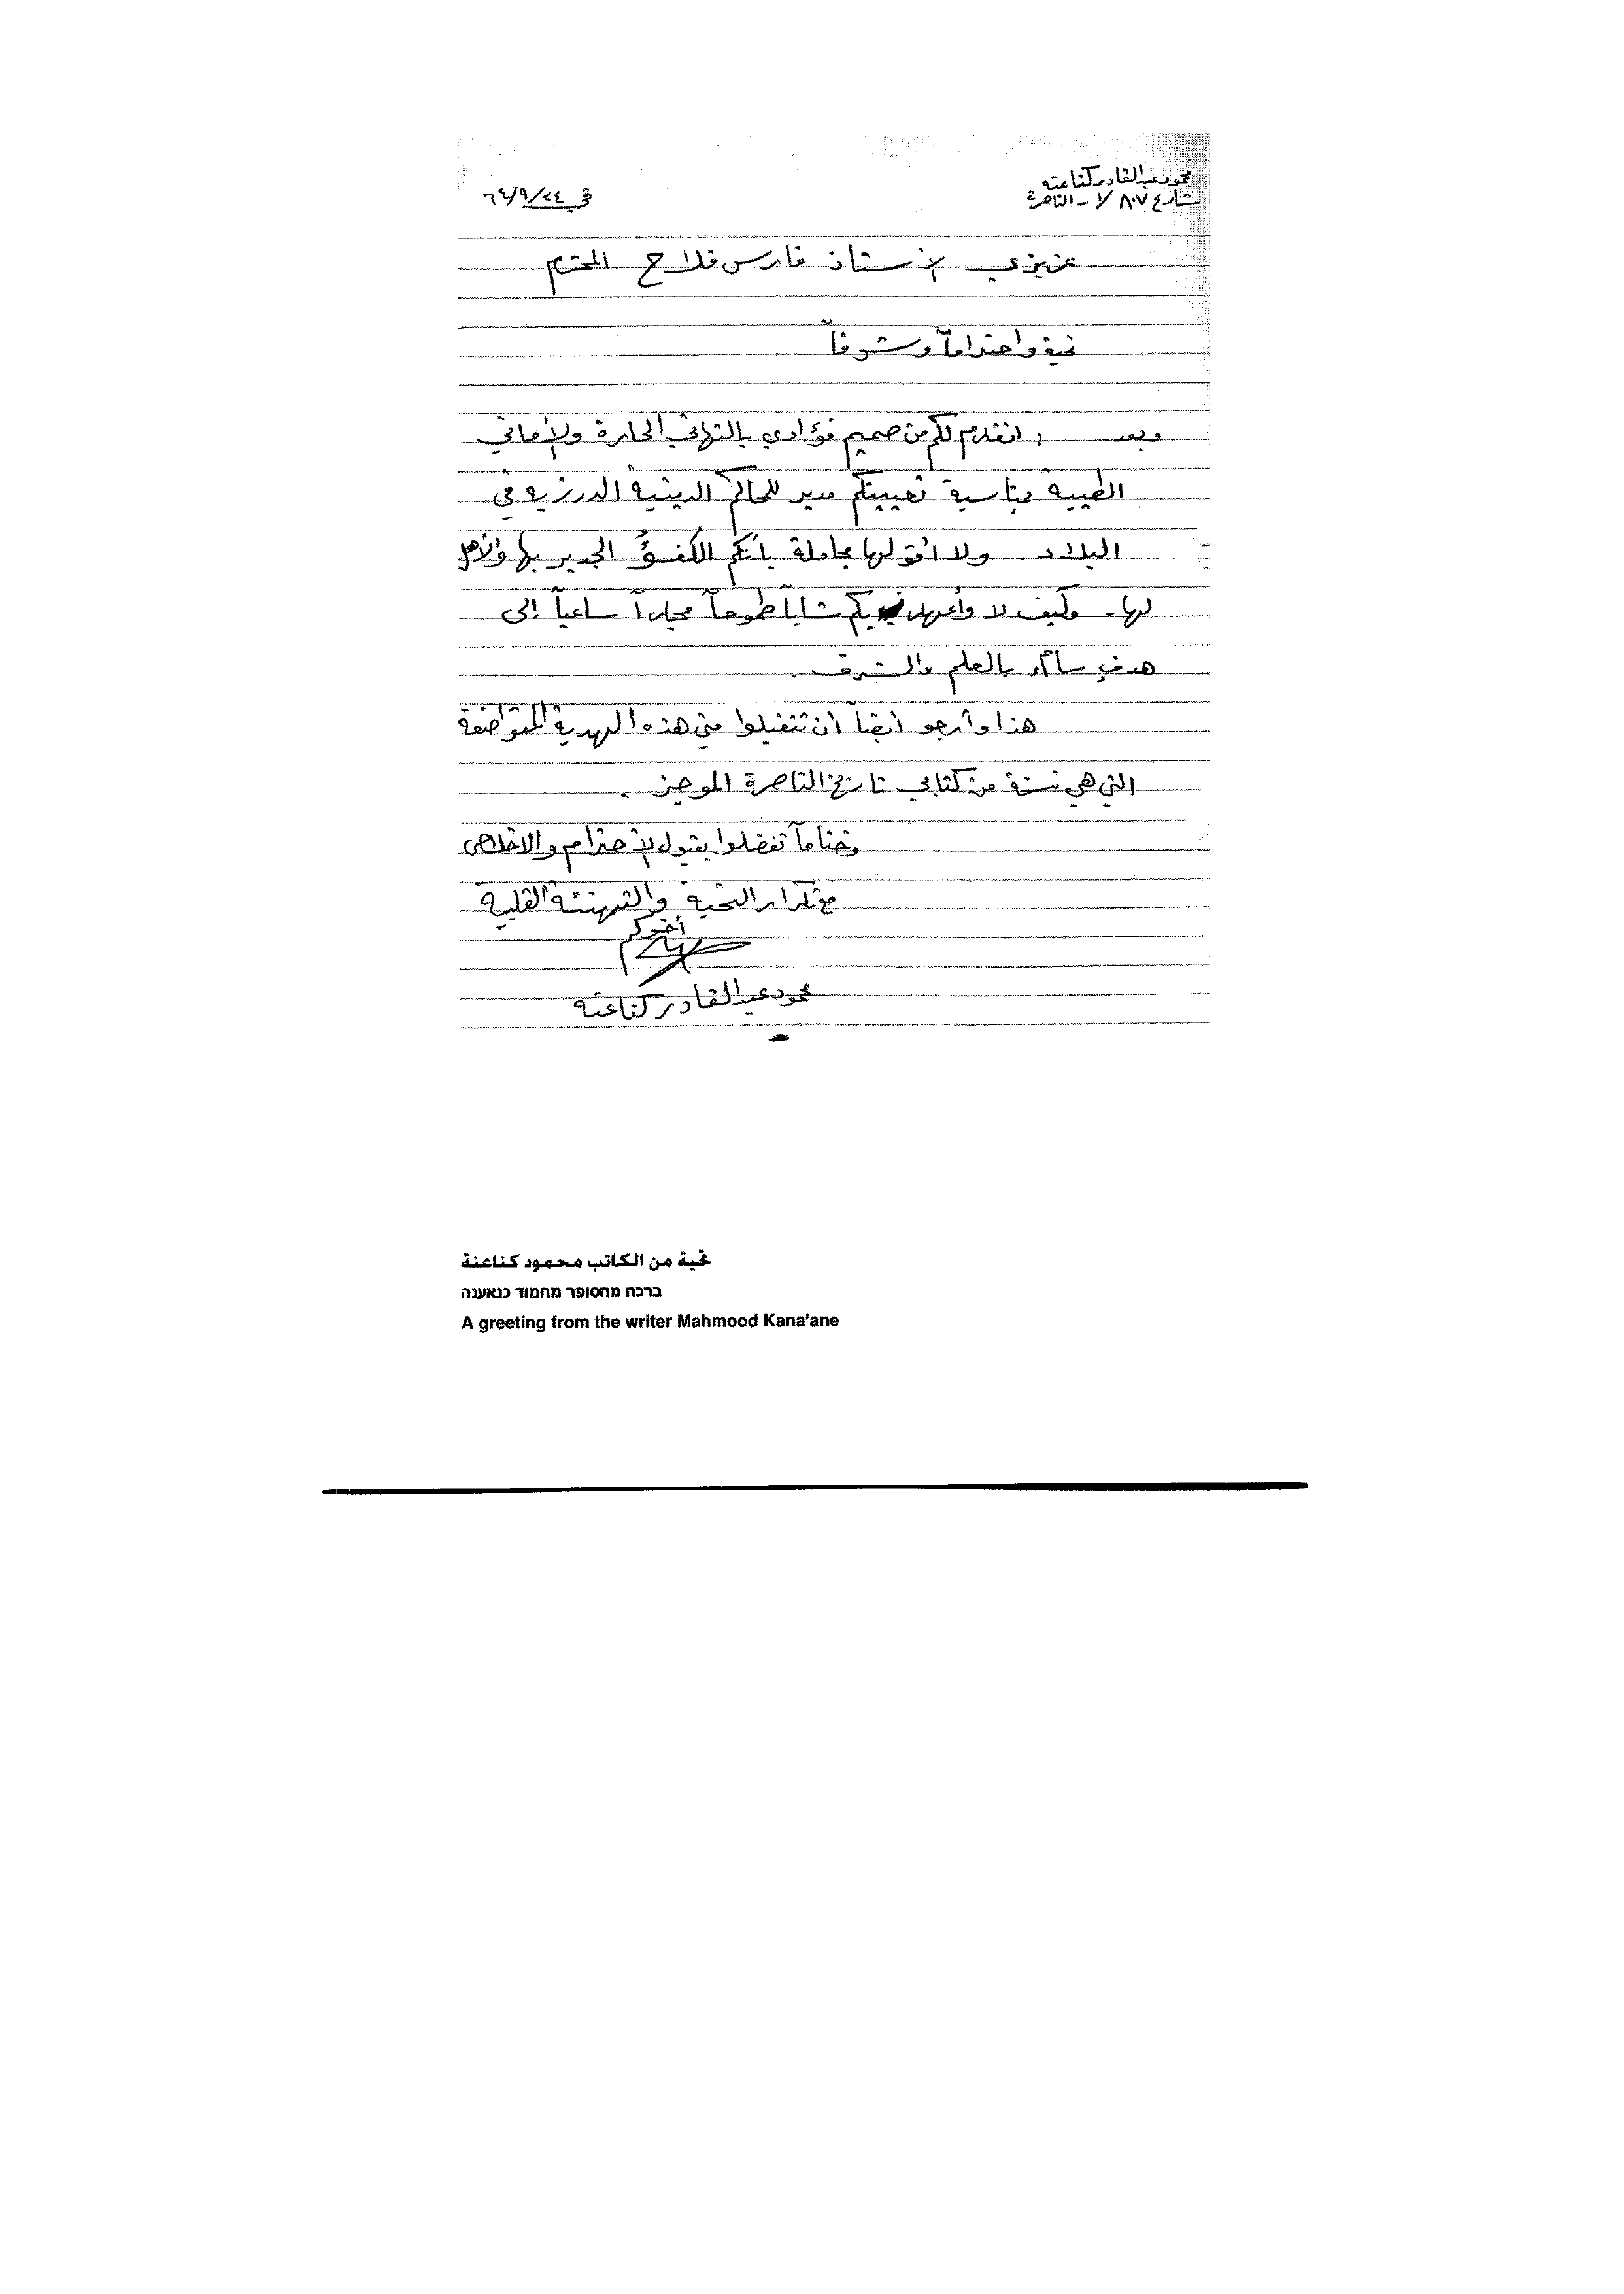 محمود عبدالقادر كناعنه
شارع ٨٠٧ /١ - الناصرة
في ٦٤/٩/٢٤
عزيزي الأستاذ فارس فلاح المحترم
تحية واحتراماً وشوقاً
وبعد ، اتقدم لكم من صميم فؤادي بالتهاني الحارة والأماني
الطيبة بمناسبة تعيينكم مدير للمحاكم الدينية الدرزية في
البلاد. ولا اقولها مجاملة بأنكم الكفؤ الجدير بها والأهل
لها. وكيف لا وأعهد بكم شاباً طموحاً مجداً ساعياً إلى
هدفٍ سامٍ بالعلم والشرف.
هذا وأرجو أيضاً أن تتقبلوا مني هذه الهدية المتواضعة
التي هي نسخة من كتابي تاريخ الناصرة الموجز.
وختاماً تفضلوا بقبول الأحترام والاخلاص
مع تكرار التحية والتهنئة القلبية
أخوكم
محمود عبدالقادر كناعنه
تحية من الكاتب محمود كناعنة
ברכה מהסופר מחמוד כנאענה
A greeting from the writer Mahmood Kana'ane